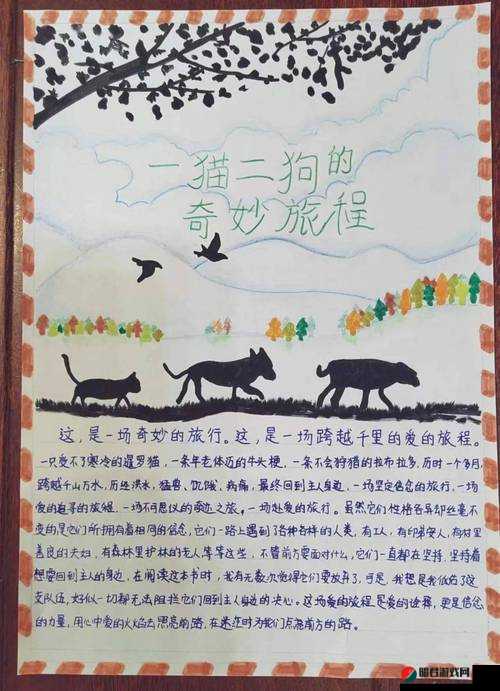 一猫二狗的
奇妙旅程
这,是一场奇妙的旅行。这,是一场跨越千里的爱的旅程。
一只受不了寒冷的暹罗猫,一条年老体迈的牛头梗,一条不会狩猎的拉布拉多,历时一个多月,
跨越千山万水,历经洪水,猛兽、饥饿、病痛,最终回到主人身边,一场坚定信念的旅行,一场
爱的追寻的旅程,一场不可思议的奇迹之旅。一场赴爱的旅行。虽然它们性格各异却丝毫不
变的是它们所拥有着相同的信念,它们一路上遇到了各种各样的人类,有工人,有印第安人,有村里
善良的夫妇,有森林里护林的老人等等这些,不管前方要面对什么,它们一直都在坚持,坚持着
想要回到主人的身边,在阅读这本书时,我有无数次觉得它们要放弃了,可是,我想是我低估了这
支队伍,好似一切都无法阻拦它们回到主人身边的决心。这场爱的旅程是爱的诠释,更是信念
的力量,用心中爱的火焰去照亮前路,在迷茫时为我们点亮前方的路。
明君游戏网